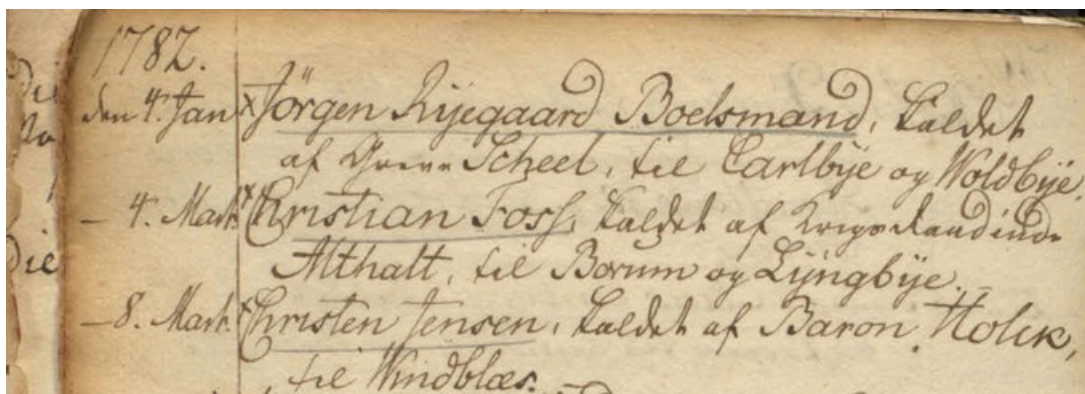 1782.
den 4. Jan × Jörgen Rijegaard Boelsmand, kaldet
af Greve Scheel, til Carlbÿe og Woldbÿe.
– 4. Mart. × Christian Foss, kaldet af Krigsraadinde
Althalt, til Borum og Lÿngbÿe. –
– 8. Mart. × Christen Jensen, kaldet af Baron Holck,
til Windblæs. –